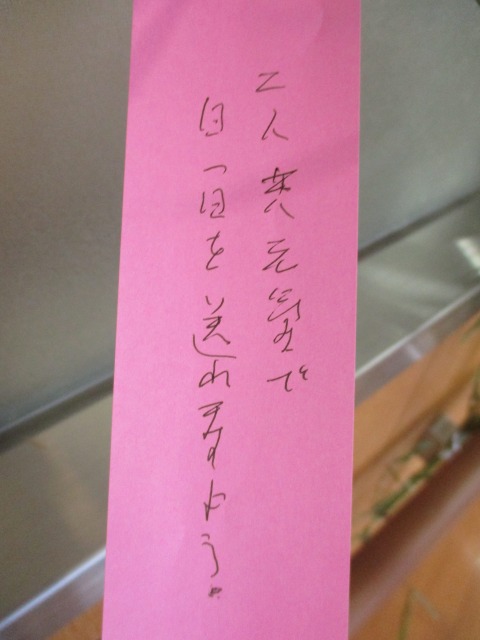 二人共元気で
日一日を送れますよう。